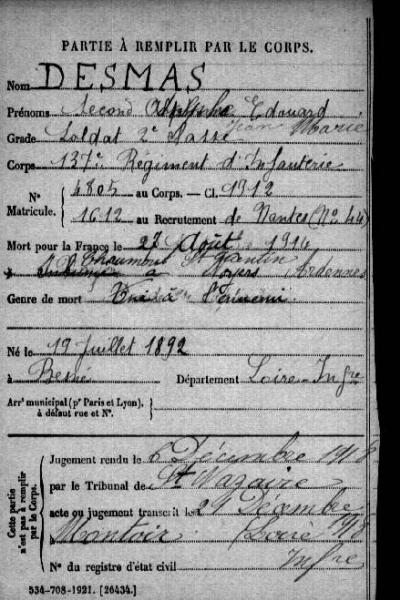 PARTIE À REMPLIR PAR LE CORPS.
Nom DESMAS
Prénoms Second Edouard
Jean Marie
Grade Soldat 2e classe
Corps 137e Régiment d'Infanterie
N° Matricule. 4805 au Corps. — Cl. 1912
1612 au Recrutement de Nantes (N° 44)
Mort pour la France le 27 Août 1914
à Chaumont St Quentin
à Noyers Ardennes
Genre de mort Tué à l'ennemi
Né le 19 Juillet 1892
à Besné Département Loire-Infre
Arrt municipal (pr Paris et Lyon), à défaut rue et N°.
Cette partie n'est pas à remplir par le Corps.
Jugement rendu le 6 Décembre 1918
par le Tribunal de St Nazaire
acte ou jugement transcrit le 29 Décembre 1918
Montoir (Loire
Infre
N° du registre d'état civil
534-708-1921. [26434.]